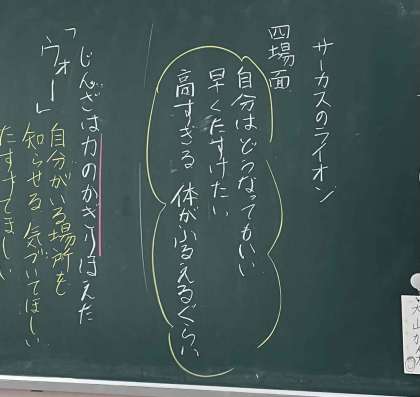 サーカスのライオン
四場面
自分はどうなってもいい
早くたすけたい
高すぎる 体がふるえるぐらい
じんざは力のかぎりほえた
「ウォー」
自分がいる場所を
知らせる 気づいてほしい
たすけてほしい